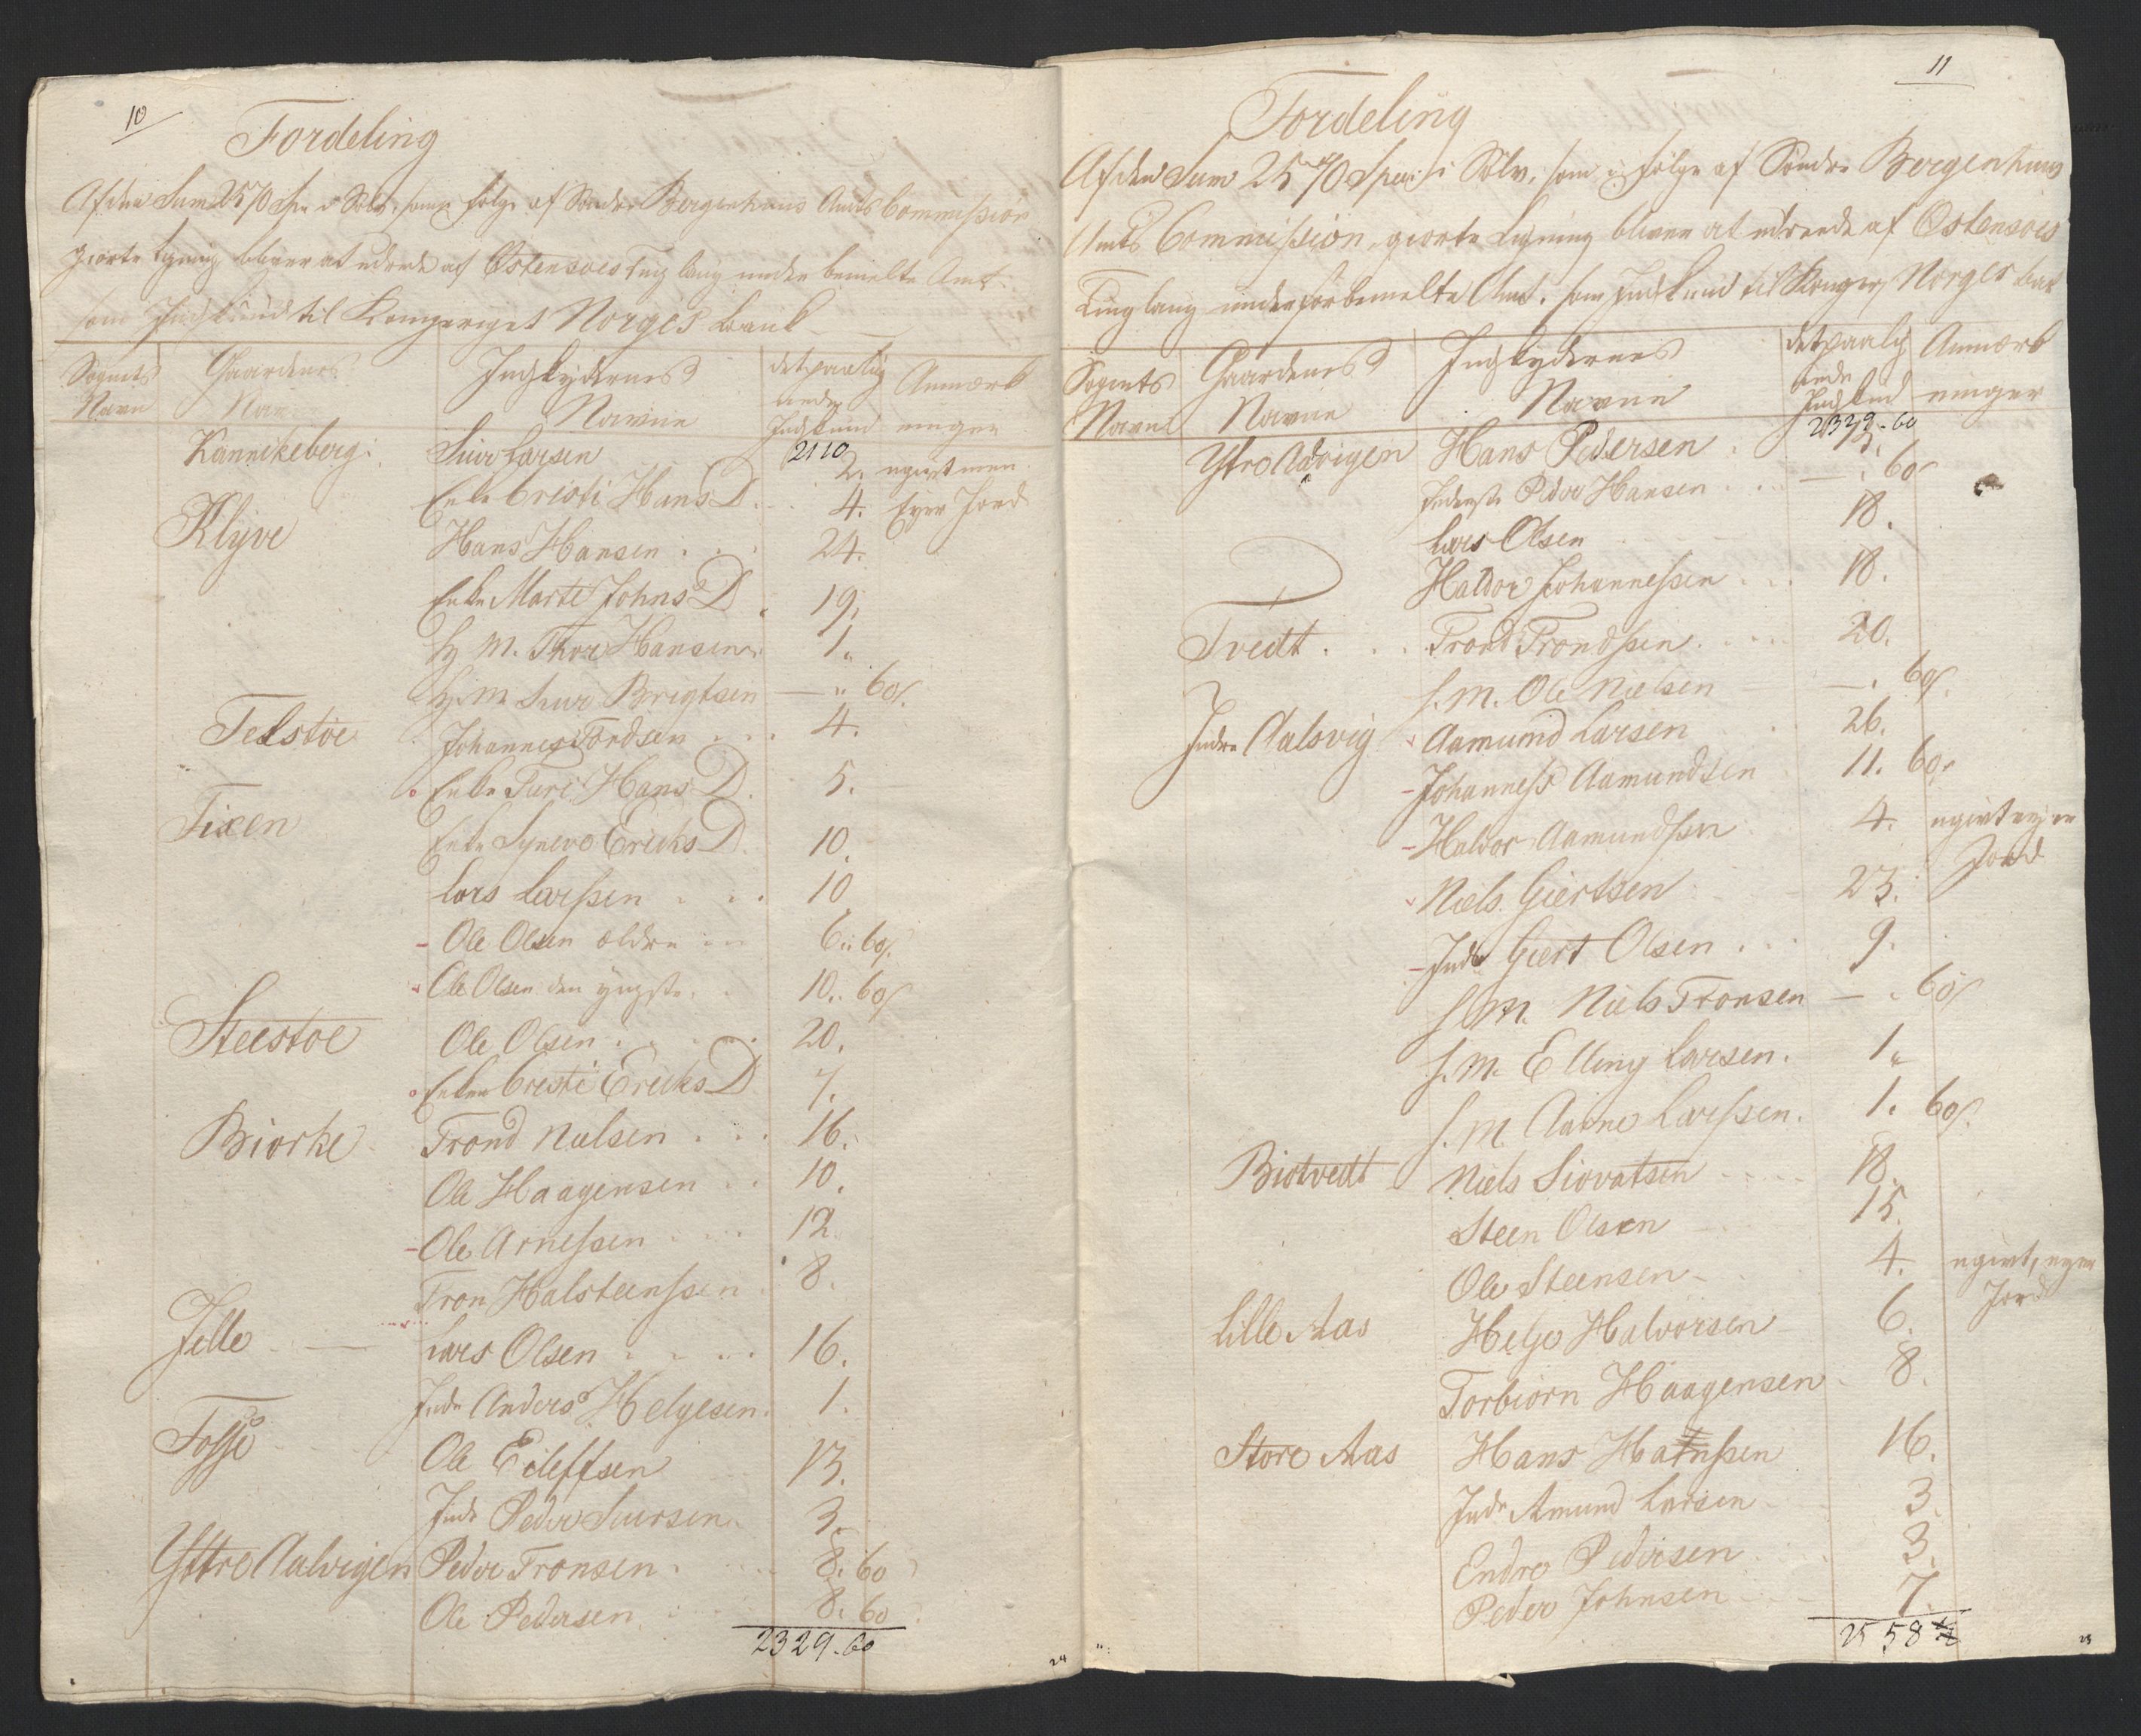 10
Fordeling
Af den Sum 2570 Spe i Sølv, som i følge af Søndre Bergenhuus Amts Commission
giorte Ligning bliver at udrede af Østensøes Tinglaug under bemelte Amt.
som Indskud til Kongeriget Norges Bank
Sognets Navn
Gaardenes Navne
Indskydernes Navne
det paalignede Indskud
Anmærkninger
2110
Kannikeberg: Siur Larsen 2. ugivt men
Enke Cristi Hans D. 4. Eyer Jord
Klyve Hans Hansen 24.
Enke Marte Johns D. 19.
H M. Thor Hansen 1.
H M Siur Brigtsen — " 60s.
Telstøe Johannes Tordsen 4.
Enke Turi Hans D. 5.
Tixen Enke Synevo Ericks D. 10.
Lars Larssen 10
Ole Olsen eldre 6 " 60s.
Ole Olsen den yngste 10. 60s
Steestøe Ole Olsen 20.
Enken Cresti Ericks D 7.
Biorke Trond Nielsen 16.
Ole Haagensen 10.
Ole Arnessen 12.
Tron Halsteenssen 8.
Jelle Lars Olsen 16.
Inds Anders Helgesen 1.
Fosse Ole Eileffsen 13.
Inds Peder Siursen 3.
Yttre Aalvigen Peder Tronsen 8. 60
Ole Pedersen 8. 60
2329.60
24
11
Fordeling
Af den Sum 2570 Specie i Sølv, som i følge af Søndre Bergenhuus
Amts Commission, giorte Ligning bliver at udreede af Østensøes
Tinglaug under forbemelte Amt, som Indskud til Konger. Norges Bank
Sognets Navn
Gaardenes Navne
Indskydernes Navne
det paalignede Indskud
Anmærkninger
2329.60
Ytre Aalvigen Hans Pedersen 13.
Inderste Peder Hansen — . 60s
Lars Olsen 18.
Haldor Johannessen 18.
Tvedt Trond Trondssen 20.
H. M. Ole Nielsen — . 60s.
Indre Aalsvig Aamund Larsen 26.
Johanness Aamundsen 11. 60s
Haldor Aamundssen 4. ugivt ejer Jord
Niels Giertsen 23.
Inds Giert Olsen 9.
H M. Niels Tronsen — . 60s
H. M. Elling Larsen. 1.
H. M. Aarne Larssen. 1. 60s.
Biotvedt Niels Siovatsen 18.
Steen Olsen 15.
Ole Steensen 4. ugivt, ejer Jord
Lille Aas Helge Halvorsen 6.
Torbiorn Haagensen 8.
Store Aas Hans Hanssen 16.
Inds Amund Larsen 3.
Endre Pedersen 3.
Peder Johnsen 7.
2558
25